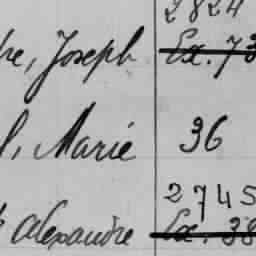 2824
he, Joseph Ex. 73
l, Marie 36
2745
Alexandre Ex. 38